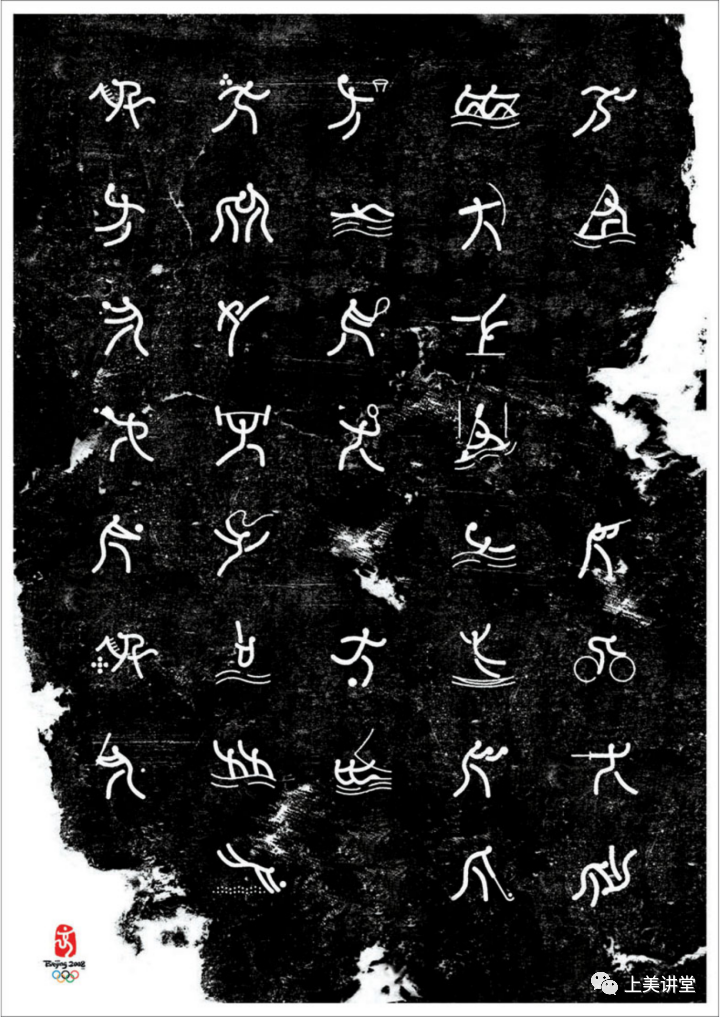 Beijing 2008
上美讲堂